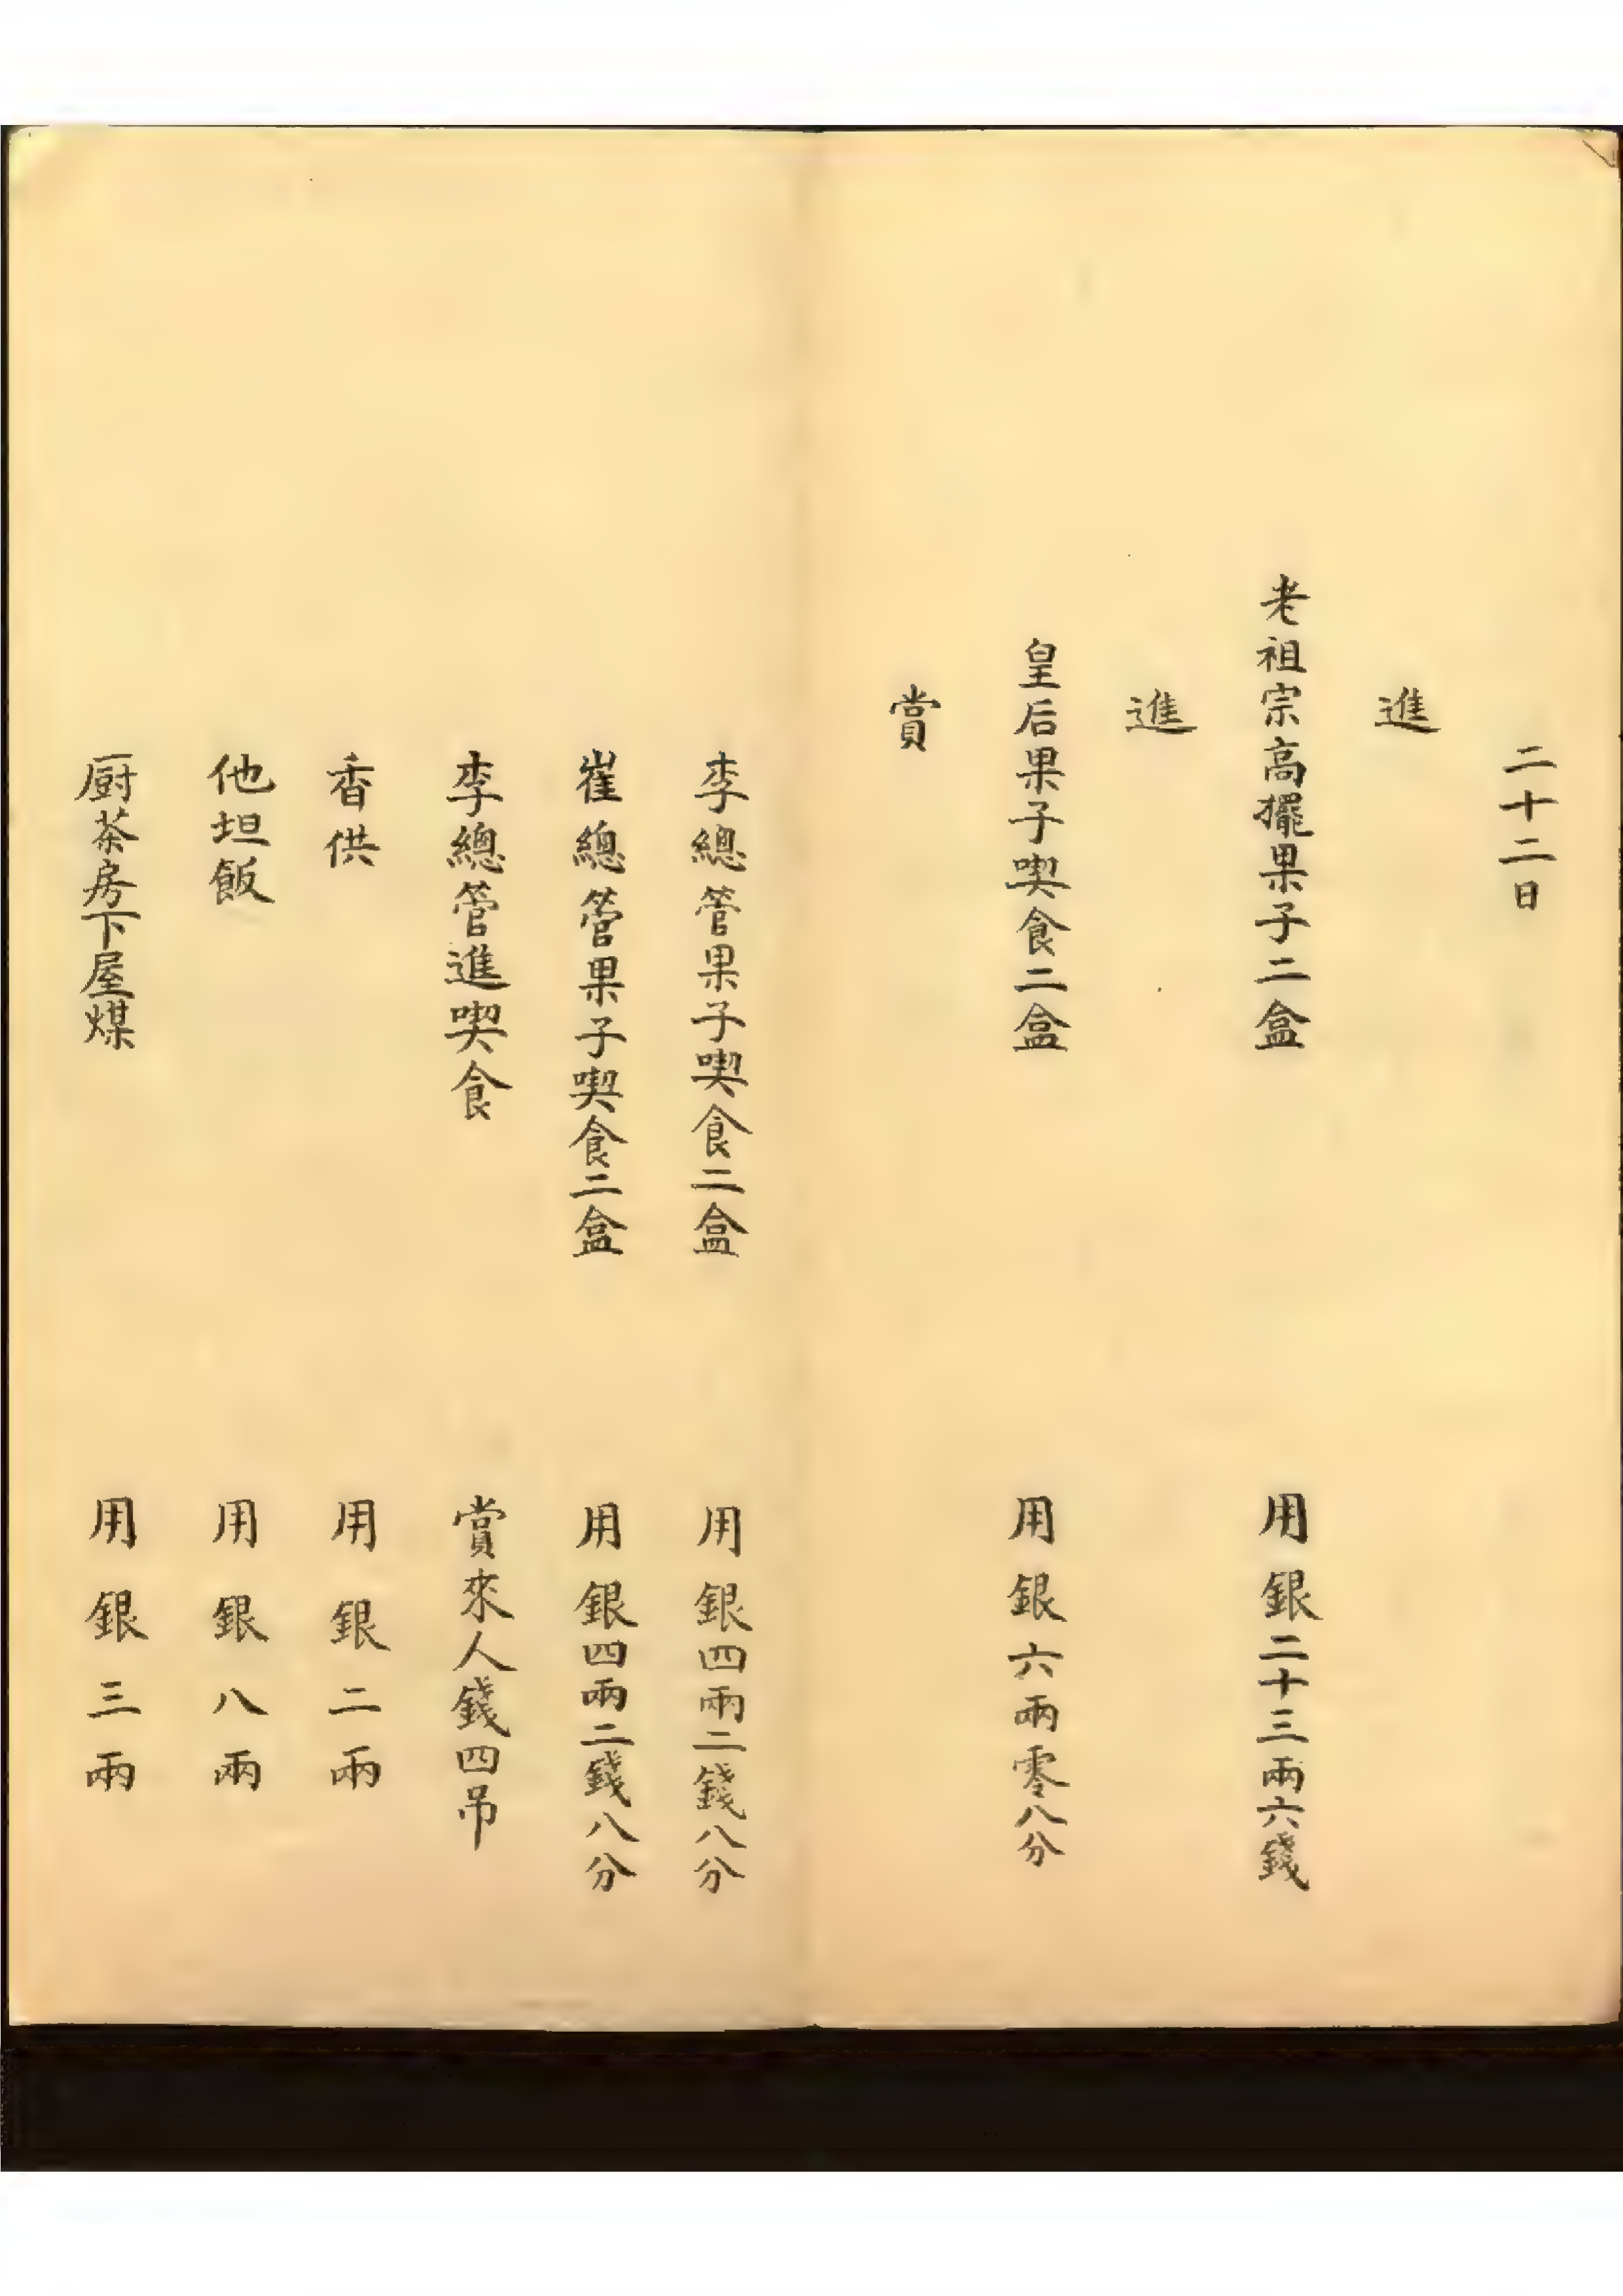 二十二日
進
老祖宗高擺果子二盒 用銀二十三兩六錢
進
皇后果子喫食二盒 用銀六兩零八分
賞
李總管果子喫食二盒 用銀四兩二錢八分
崔總管果子喫食二盒 用銀四兩二錢八分
李總管進喫食 賞來人錢四吊
香供 用銀二兩
他坦飯 用銀八兩
厨茶房下屋煤 用銀三兩